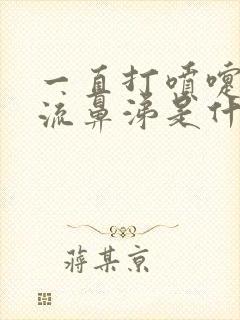 一直打喷嚏
流鼻涕是什
蒋某京